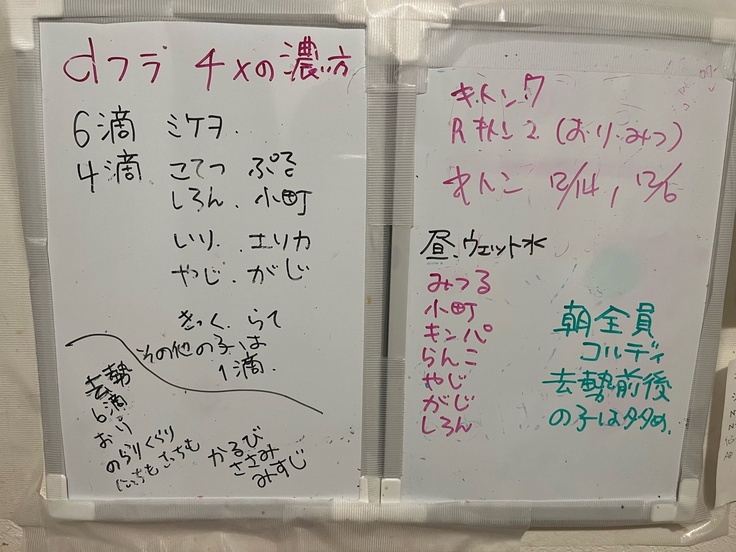 dフラ 4×の濃い方
6滴 ミケヲ.
4滴 こてつ ぷる
しろん. 小町
いり. エリカ
やじ. がじ
きっく. らて
その他の子は
1滴.
去勢
6滴
おり
のらりくらり
にっちもさっちも
かるび
ささみ
みすじ
キトン7
Rキトン2 (おり.みつ)
キトン 12/14, 12/6
昼.ウェット水
みつる
小町
キンパ
らんこ
やじ
がじ
しろん
朝全員
コルディ
去勢前後
の子は多め.